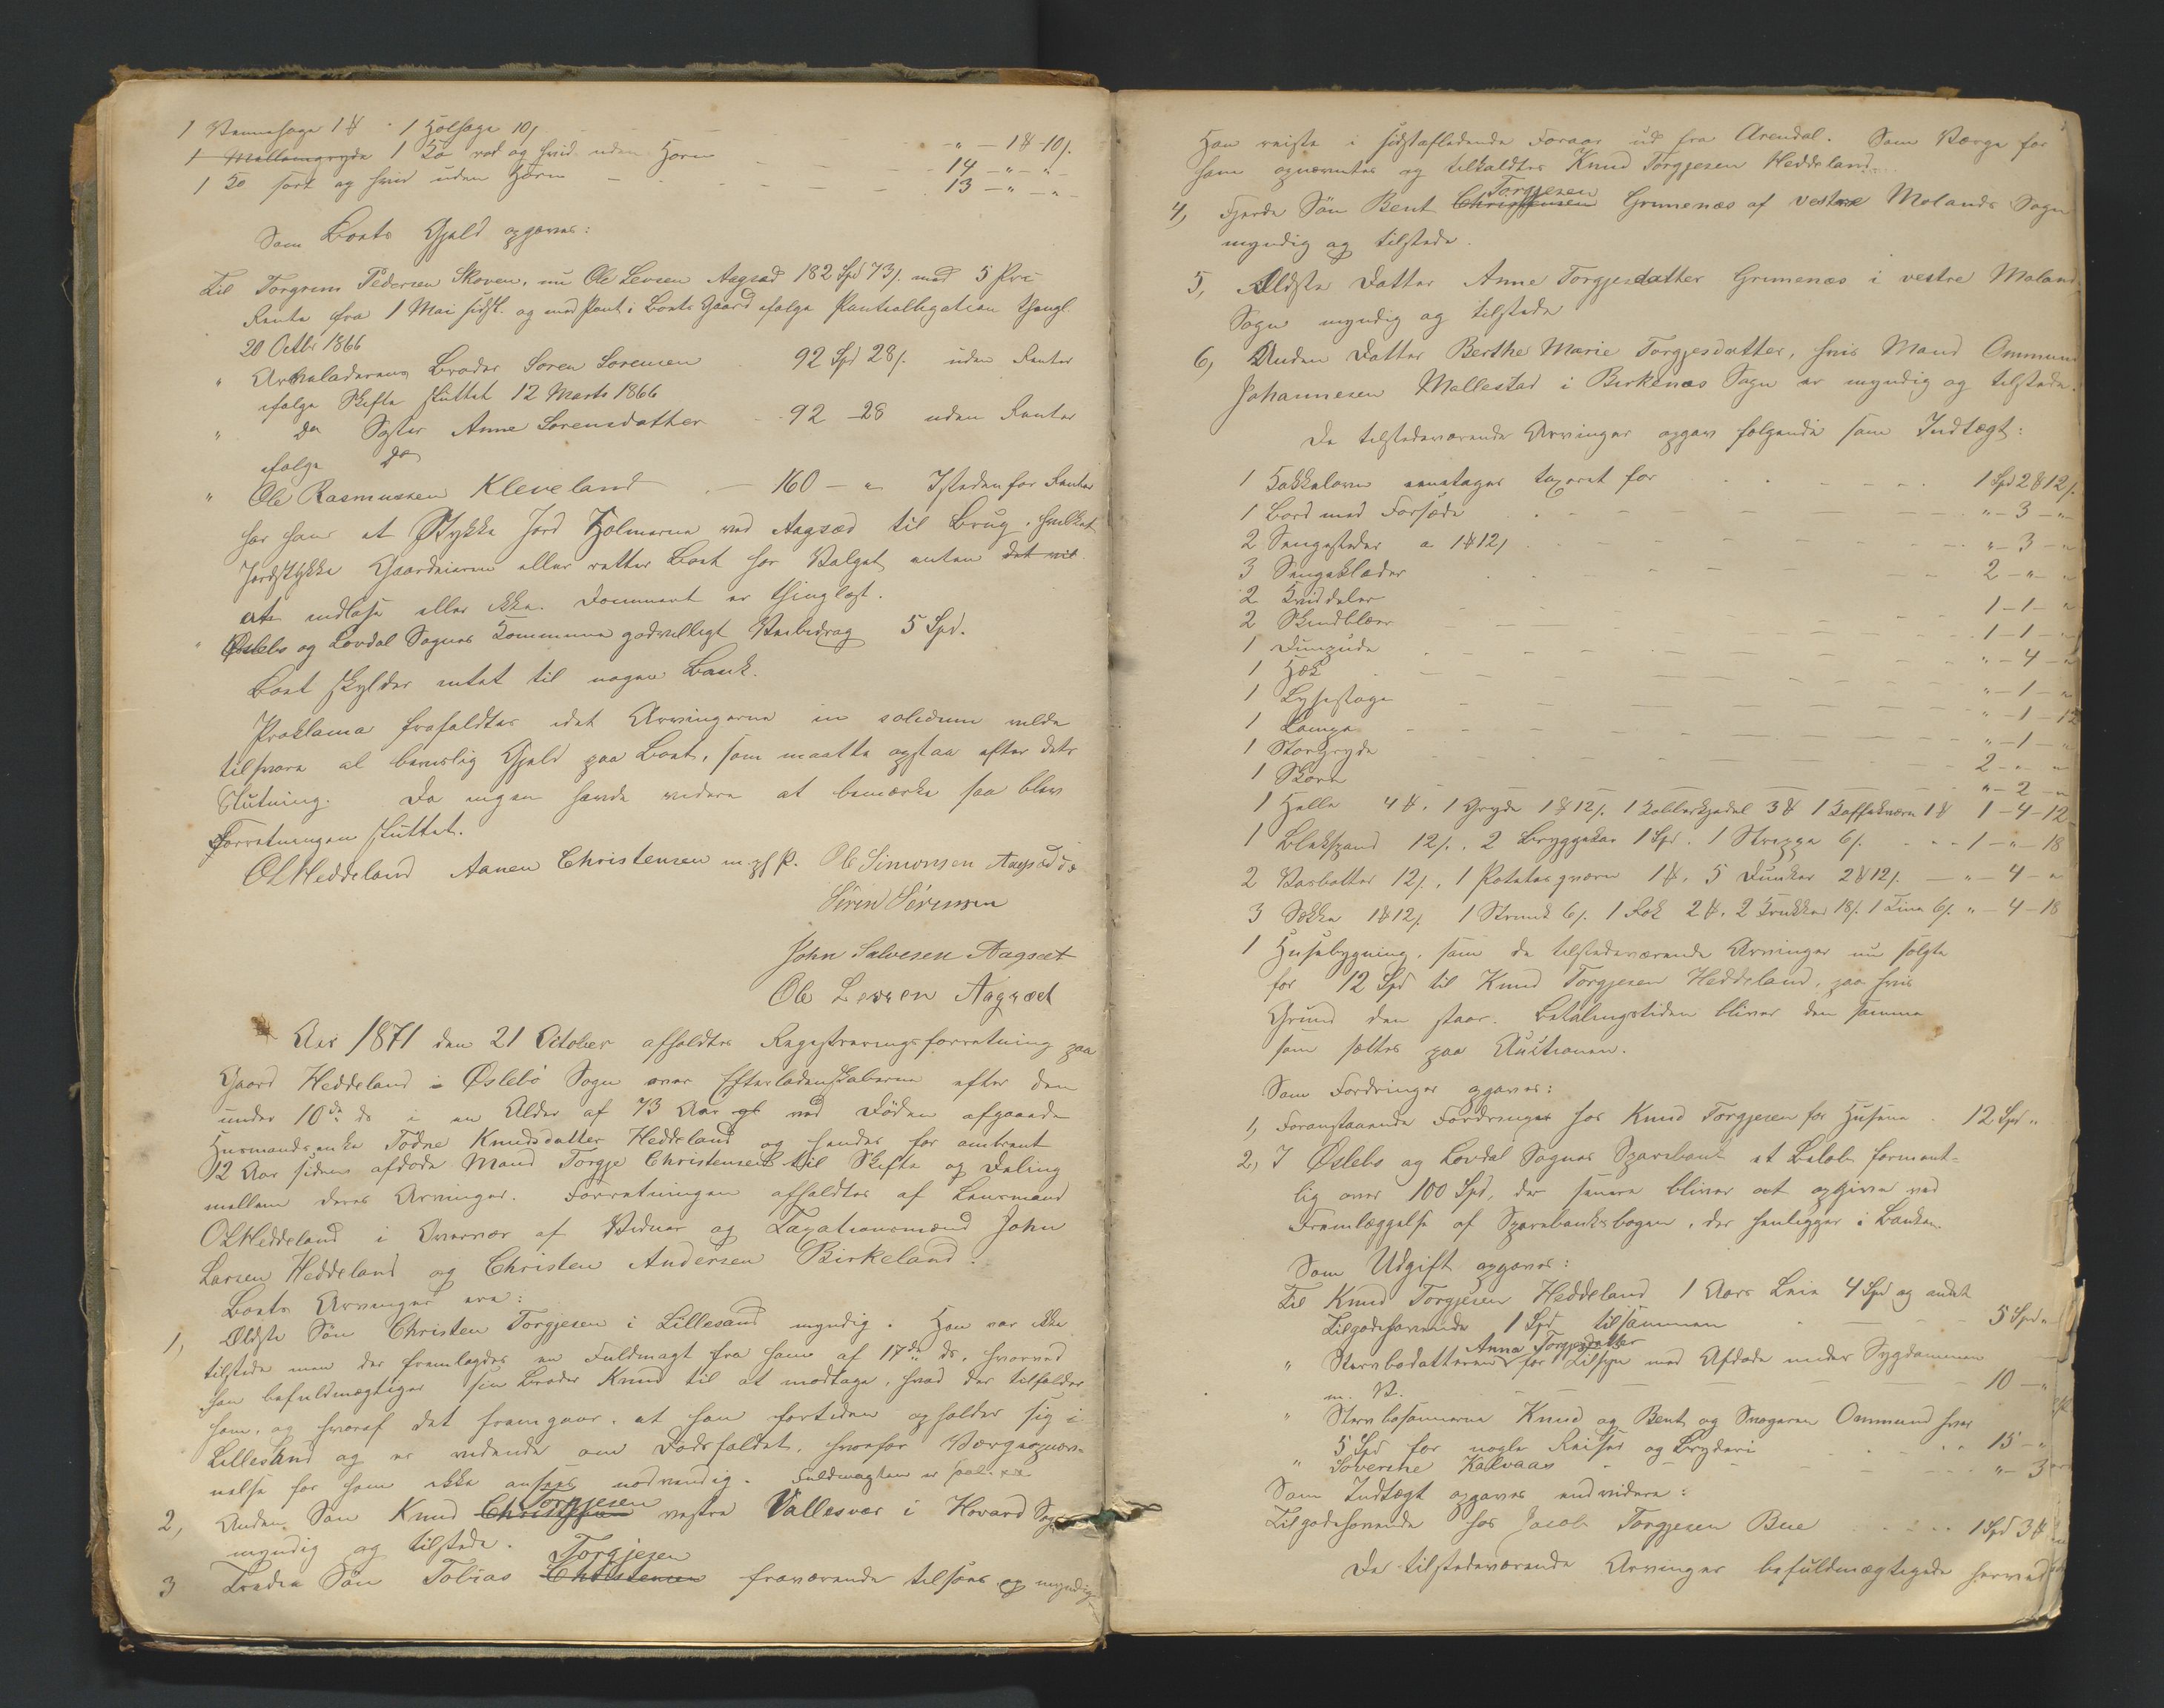 1 1 ₰ 1 Hølsage 10/ " - 1 ₰ 10/.
1 Mellomgryde 1 Ko rød og hvid uden Horn 14 - " - "
1 Ko sort og hvid uden Horn 13 - " - "
Som Boets Gjeld opgaves:
Til Torgrim Pedersen Skoven, nu Ole Levsen Aagsæd 182 Spd 73/. med 5 Pro
Rente fra 1 Mai sidst. og med Pant i Boets Gaard ifølge Pantobligation thingl.
20 Octbr 1866
" Arveladerens Broder Søren Sørensen 92 Spd 28/. uden Renter
ifølge Skifte sluttet 12 Marts 1866
" Do Søster Anne Sørensdatter 92 - 28 uden Renter
ifølge Do
" Ole Rasmussen Kleveland - 160 - " Istedenfor Renter
har han et Stykke Jord Holmerne ved Aagsæd til Brug, hvilket
Jordstykke Gaardeieren eller retter Boet har Valget enten det vil
at indløse eller ikke. Document er thinglæst.
" Øslebø og Løvdal Sognes Kommune godvilligt Veibidrag 5 Spd.
Boet skylder intet til nogen Bank.
Proklama frafaldtes idet Arvingerne in solidum vilde
tilsvare al beviislig Gjeld paa Boet, som maatte opstaa efter dets
Slutning. Da ingen havde videre at bemærke saa blev
Forretningen sluttet.
OLHeddeland Aanen Christensen m. p. f P. Ole Simonsen Aagsæd
Sören Sörensen
John Salvesen Aagsæt
Ole Levsen Aagsæt
Aar 1871 den 21 October afholdtes Registreringsforretning paa
Gaard Heddeland i Øslebö Sogn over Efterladenskaberne efter den
under 10de ds i en Alder af 73 Aar gl ved Døden afgaaede
Husmandsenke Todne Knudsdatter Heddeland og hendes for omtrent
12 Aar siden afdøde Mand Torgje Christensen til Skifte og Deling
mellem deres Arvinger. Forretningen afholdtes af Lensmand
OLHeddeland i Overvær af Vidner og Taxationsmænd John
Larsen Heddeland og Christen Andersen Birkeland.
Boets Arvinger ere:
1, Ældste Søn Christen Torgjesen i Lillesand myndig. Han var ikke
tilstede men der fremlagdes en Fuldmagt fra ham af 17de ds, hvorved
han befuldmægtiger sin Broder Knud til at modtage, hvad der tilfalder
ham, og hvoraf det fremgaar, at han fortiden opholder sig i
Lillesand og er vidende om Dødsfaldet, hvorfor Værgeopnæv-
nelse for ham ikke ansees nødvendig. Fuldmagten er
2, Anden Søn Knud Christensen Torgjesen vestre Vallesvær i Hovaad Sogn
myndig og tilstede.
3 Tredie Søn Tobias Christensen Torgjesen fraværende tilsøes og myndig
Han reiste i sidstafledende Foraar ud fra Arendal. Som Værge for
ham opnævntes og tilkaldtes Knud Torgjesen Heddeland.
4, Fjerde Søn Bent Christensen Torgjesen Grimenæs af vestre Molands Sogn
myndig og tilstede.
5, Ældste Datter Anne Torgjesdatter Grimenæs i vestre Moland
Sogn myndig og tilstede
6, Anden Datter Berthe Marie Torgjesdatter, hvis Mand Ommund
Johannesen Mollestad i Birkenæs Sogn er myndig og tilstede.
De tilstedeværende Arvinger opgav følgende som Indtægt:
1 Kakkelovn eenetages taxeret for 1 Spd 2 ₰ 12/.
1 Bord med Forsæde " - 3 - "
2 Sengesteder a 1 ₰ 12/ " - 3 - "
3 Sengeklæder 2 - " - "
2 Hviddeler 1 - 1 - "
2 Skindblær 1 - 1 - "
1 Dunpude " - 4 - "
1 Hæk " - 1 - "
1 Lysestage " - 1 - 12
1 Lampe " - 1 - "
1 Storgryde 2 - " - "
1 Skorn " - 2 - "
1 Helle 4 ₰, 1 Gryde 1 ₰ 12/. 1 Kobberkjedel 3 ₰ 1 Kaffekværn 1 ₰ 1 - 4 - 12
1 Blekspand 12/., 2 Bryggekar 1 Spd. 1 Strippe 6/. 1 - " - 18
2 Vasbøtter 12/., 1 Potetesqværn 1 ₰, 5 Dunker 2 ₰ 12/. " - 4 - "
3 Sække 1 ₰ 12/. 1 6/. 1 Rok 2 ₰, 2 Krukker 18/. 1 Tine 6/. " - 4 - 18
1 Husebygning, som de tilstedeværende Arvinger nu solgte
for 12 Spd til Knud Torgjesen Heddeland, paa hvis
Grund den staar. Betalingstiden bliver den samme
som sættes paa Auctionen.
Som Fordringer opgaves:
1, Foranstaaende Fordringer hos Knud Torgjesen for Husene 12 Spd "
2, I Øslebø og Løvdal Sognes Sparebank et Beløb forment-
lig over 100 Spd, der senere bliver at opgive ved
Fremlæggelse af Sparebanksbogen, der henligger i Banken.
Som Udgift opgaves:
Til Knud Torgjesen Heddeland 1 Aars Leie 4 Spd og andet
Tilgodehavende 1 Spd tilsammen 5 Spd "
" Stervbodatteren Anna Torgjesdatter for Tilsyn med Afdøde under Sygdommen
m. V. 10 - "
" Stervbosønnerne Knud og Bent og Svogeren Ommund hver
5 Spd for nogle Reiser og Bryderi 15 - "
" Severine Kalvaas " - 3
Som Indtægt opgaves endvidere:
Tilgodehavende hos Jacob Torgjesen Bue 1 Spd 3 ₰
De tilstedeværende Arvinger befuldmægtigede herved